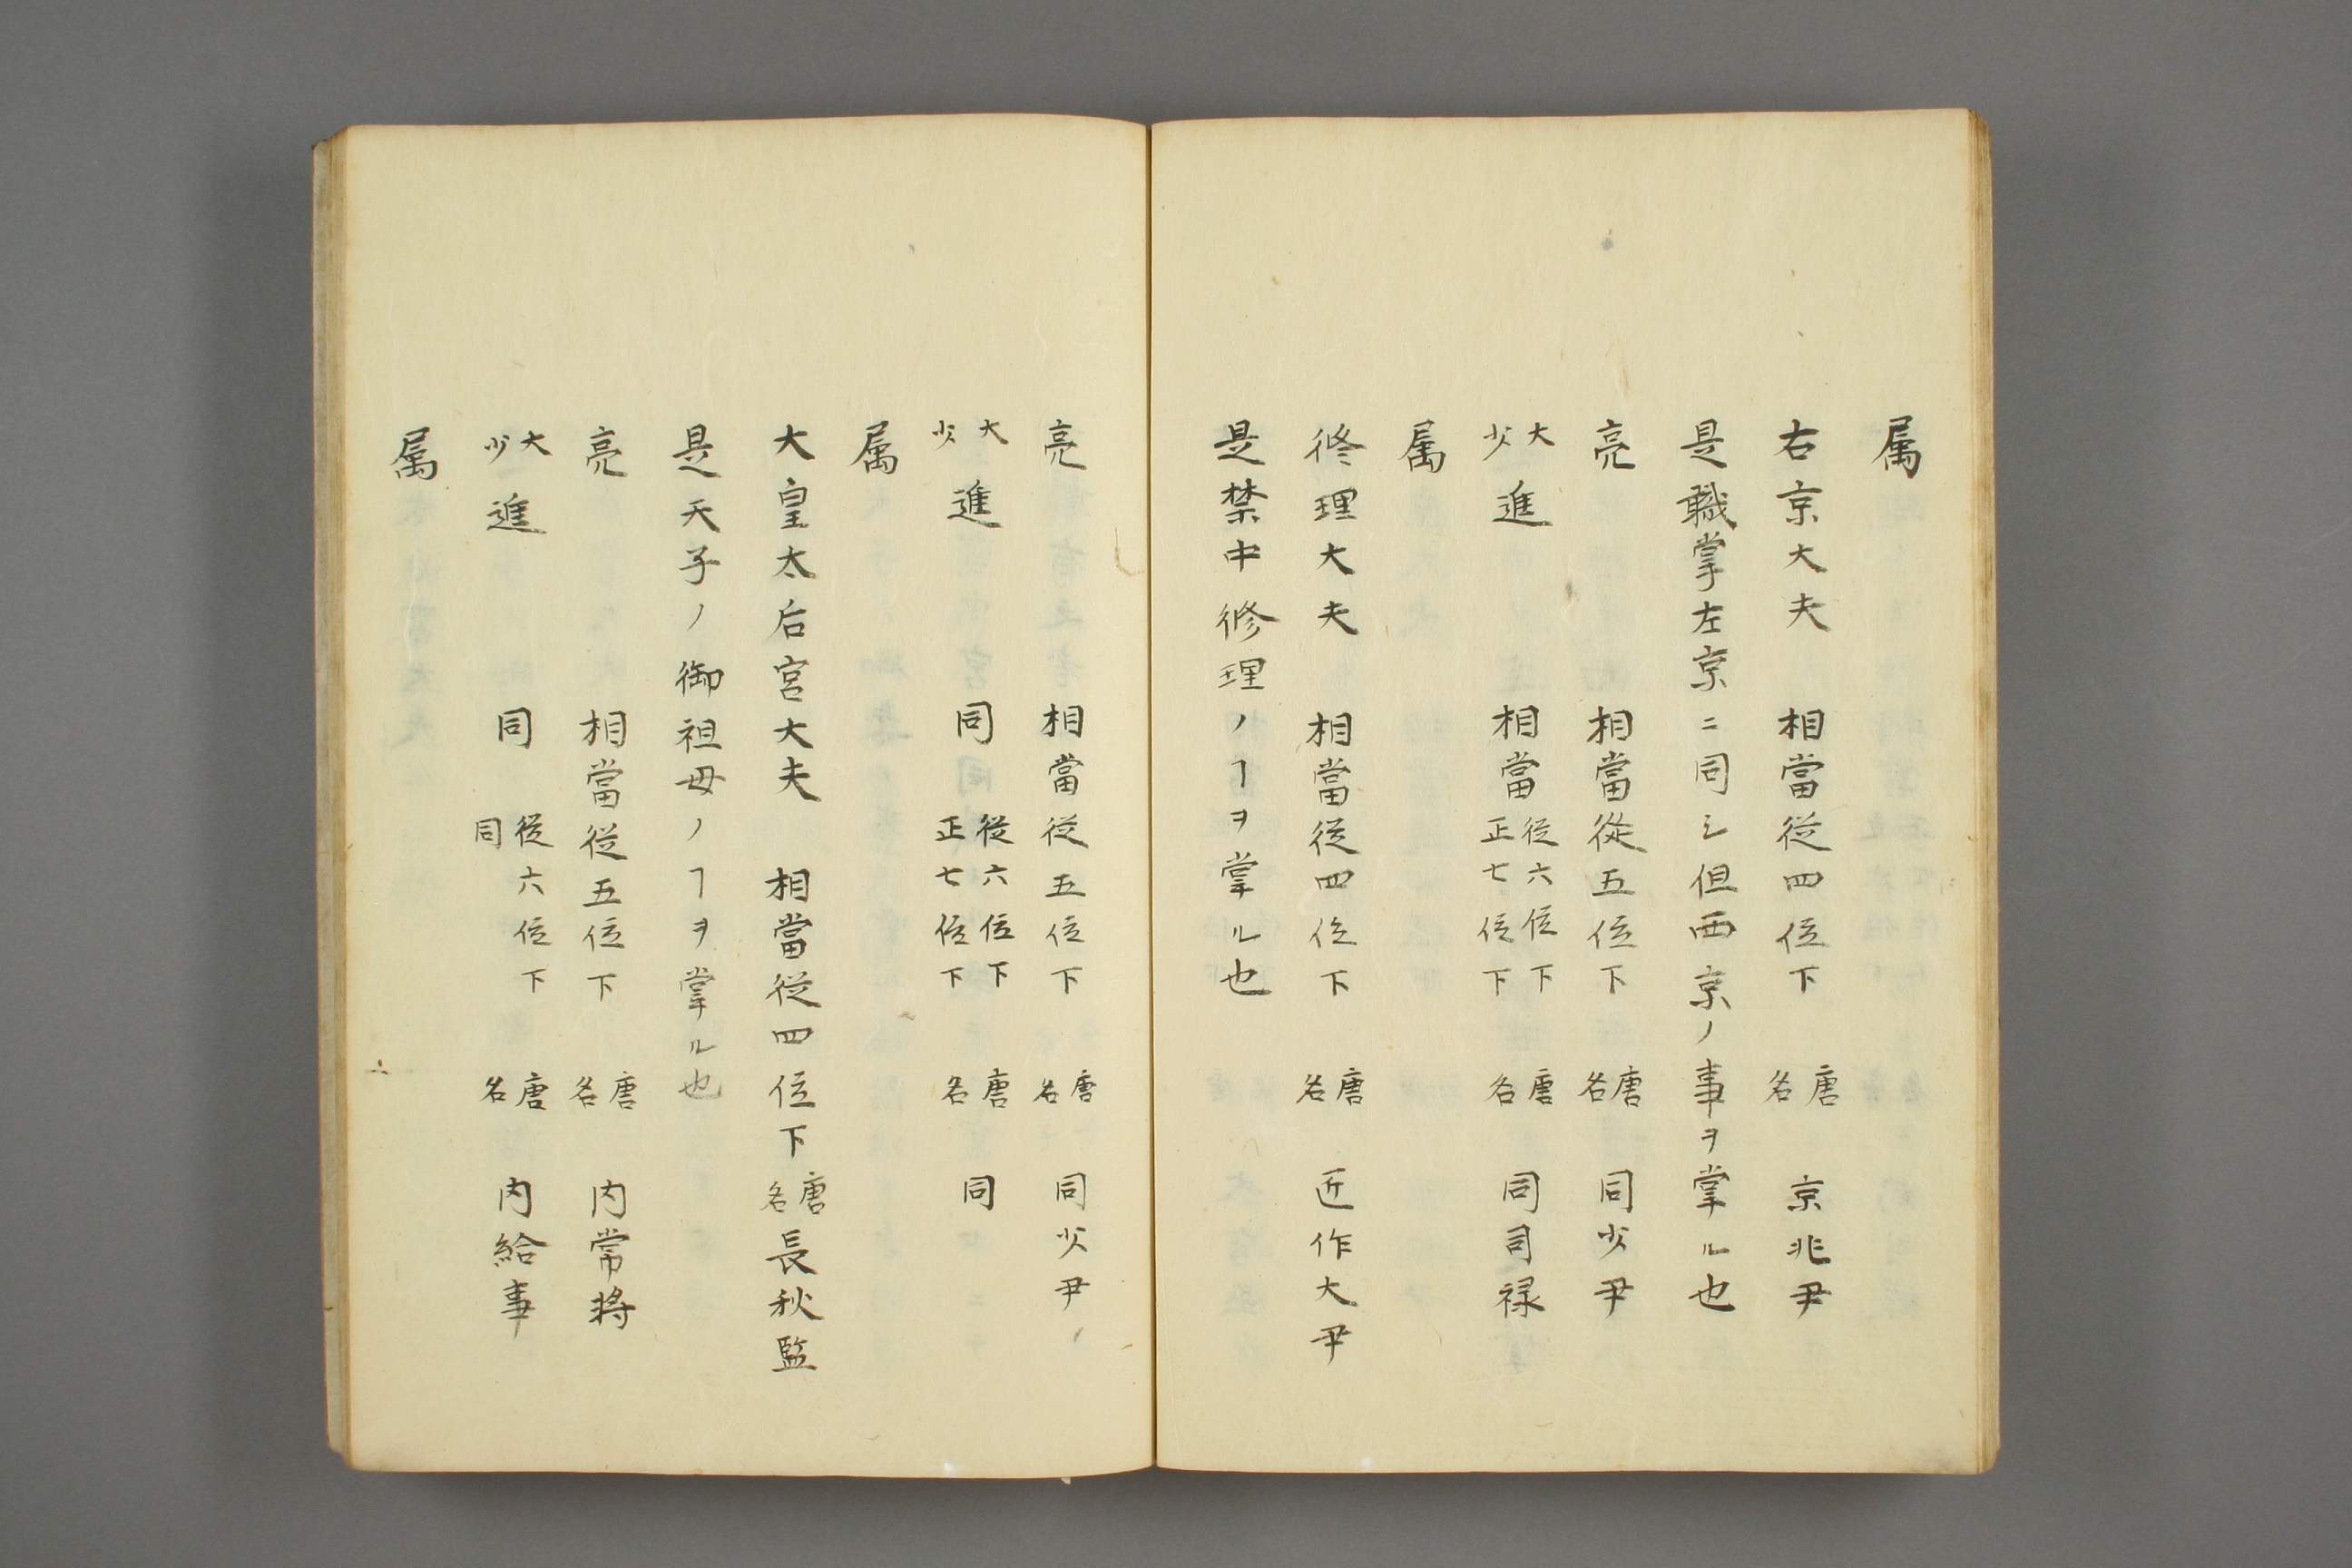 属
右京大夫 相當従四位下 唐名 京兆尹
是職掌左京ニ同シ但西京ノ事ヲ掌ル也
亮 相當従五位下 唐名 同少尹
大少進 相當従六位下正七位下 唐名 同司禄
属
修理大夫 相當従四位下 唐名 匠作大尹
是禁中修理ノヿヲ掌ル也
亮 相當従五位下 唐名 同少尹
大少進 同従六位下正七位下 唐名 同
属
大皇太后宮大夫 相當従四位下 唐名 長秋監
是天子ノ御祖母ノヿヲ掌ル也
亮 相當従五位下 唐名 内常将
大少進 同従六位下同 唐名 内給事
属